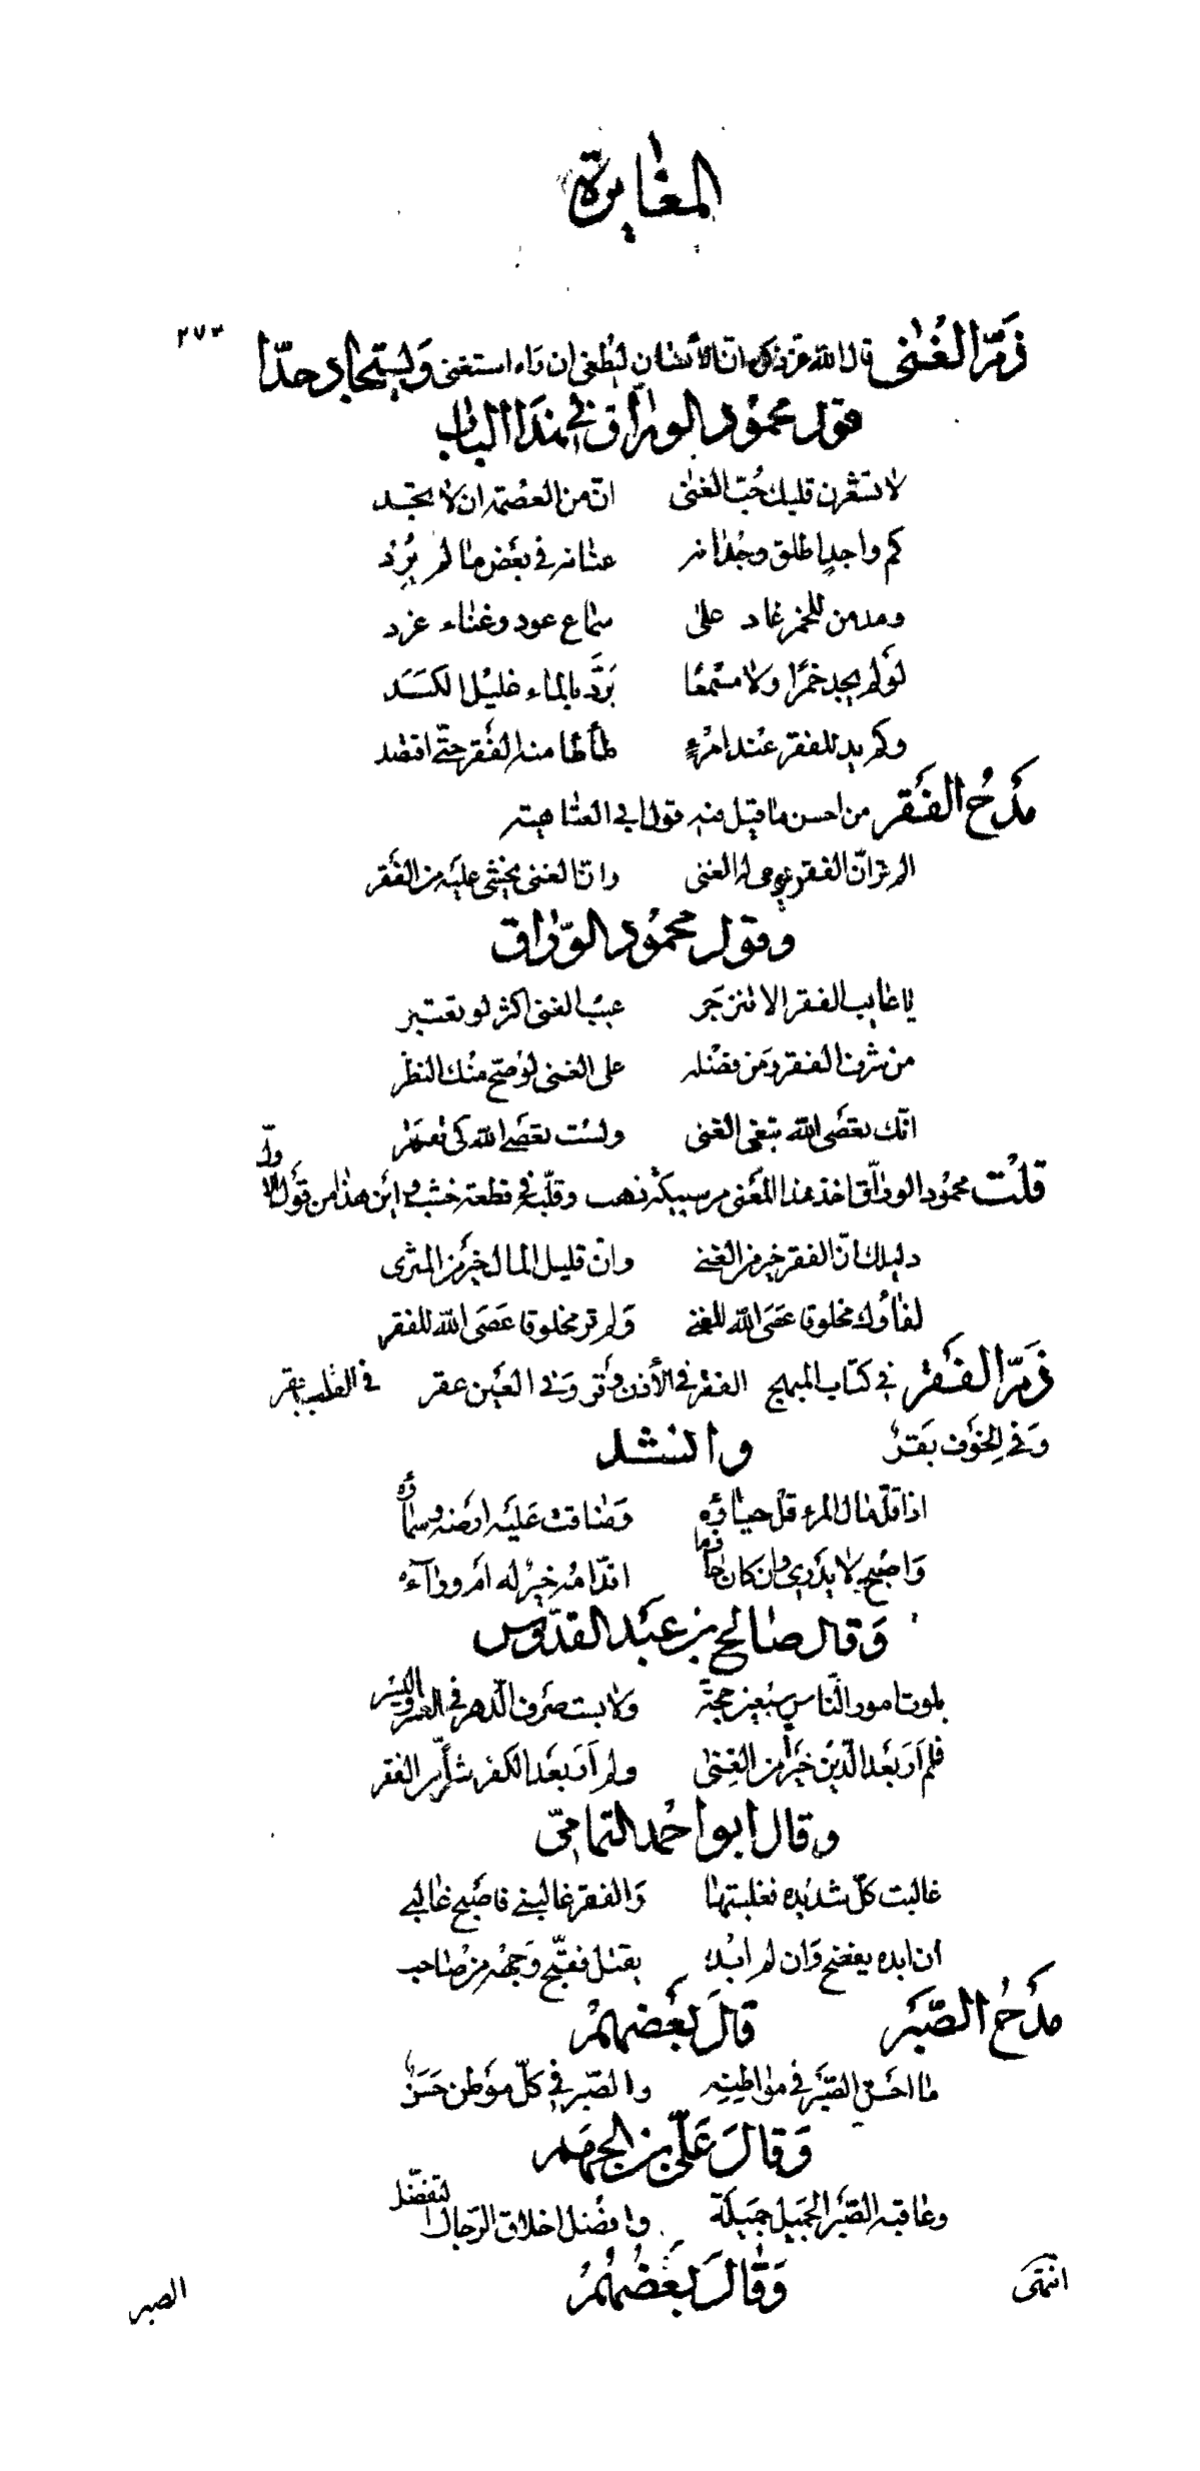 المغايرة
٢٧٣
ذمّ الغنى قال الله عز ذكره ان الأنسان ليطغى ان راه استغنى ويستجاد جدّا
قول محمود الوراق في هذا الباب
لا تشعرن قلبك حبّ الغنى انّ من العصمة ان لا تجد
كم واجد اطلق وجدانه عنانه في بعض ما لم يرد
ومدمن للخمر غاد على سماع عود وغناء غرد
لو لم يجد خمرًا ولا مسمعًا برّد بالماء غليل الكبد
وكم يد للفقر عند امرءٍ طأطأ منه الفقر حتّى اقتصد
مدح الفقر من احسن ما قيل فيه قول ابي العتاهية
الم تر انّ الفقر يرجى له الغنى وانّ الغنى يخشى عليه من الفقر
وقول محمود الورّاق
يا عايب الفقر الا تنزجر عيب الغنى اكثر لو تعتبر
من شرف الفقر ومن فضله على الغنى لو صحّ منك النظر
انّك تعصى الله تبغى الغنى ولست تعصى الله كى تفتقر
قلت محمود الورّاق اخذ هذا المعنى من سبيكة ذهب وقلّبه في قطعة خشب واين هذا من قول الاوّل
دليلك انّ الفقر خير من الغنى وانّ قليل المال خير من المثرى
لقاؤك مخلوقا عصى الله للغنى ولم تر مخلوقا عصى الله للفقر
ذمّ الفقر في كتاب المبهج الفقر في الأذن وقر وفى العين عقر في القلب نقر
وفى الجوف بقر وانشد
اذا قلّ مال المرء قلّ حياؤه وضاقت عليه ارضه وسماؤه
واصبح لا يدرى وان كان حازما اقدّامه خير له ام وراءه
وقال صالح بن عبد القدّوس
بلوت امور النّاس سبعين حجة ولابست صرف الدّهر في العسر واليسر
فلم ار بعد الدّين خيرا من الغنى ولم ار بعد الكفر شرّا من الفقر
وقال ابو احمد التمامى
غالبت كلّ شديده فغلبتها والفقر غالبني فاصبح غالبي
ان ابده يفضح وان لم ابده يقتل فقبّح وجهه من صاحب
مدح الصّبر قال بعضهم
ما احسن الصّبر في مواطنه والصّبر في كلّ موطن حسن
وقال علّى بن الجهم
وعاقبه الصّبر الجميل جميلة وافضل اخلاق الرّجال التفضّل
وقال بعضهم
انتهى
الصبر